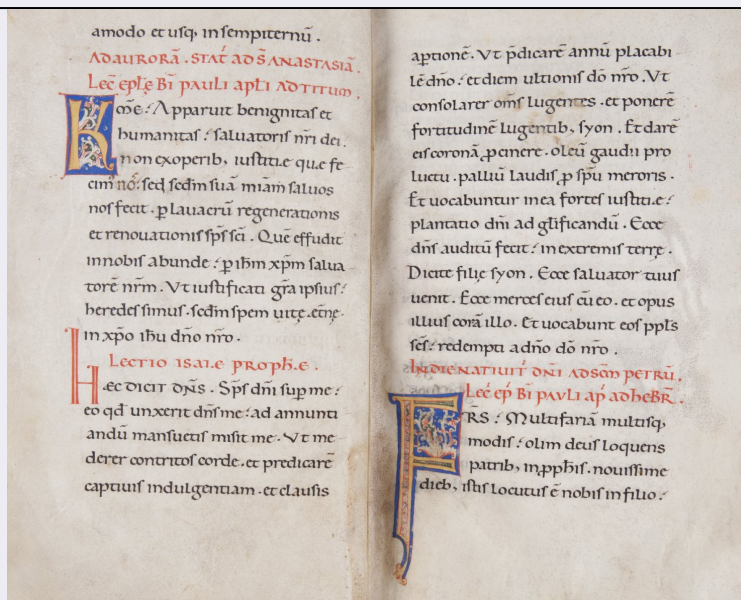 amodo et usq; in sempiternū .
AD AURORĀ . STAT̄ AD S̄ ANASTASIĀ .
Lec̄ epłe Bī pauli apłi AD TITUM .
K̄ME : Apparuit benignitas et
humanitas : saluatoris nr̄i dei .
non ex operib; iustitie que fe
cim̄ nō : sed scdm̄ suā miam̄ saluos
nos fecit . p lauacrū regenerationis
et renouationis sp̄s sc̄i . Quē effudit
in nobis abunde : p ih̄m xp̄m salua
torē nr̄m . Ut iustificati gr̄a ipsius :
heredes simus . scdm̄ spem uite ętn̄ę .
in xp̄o ih̄u dn̄o nr̄o .
LECTIO ISAIE PROPH̄E .
HEC DICIT DN̄S . Sp̄s dn̄i sup me :
eo qd̄ unxerit dn̄s me : ad annunti
andū mansuetis misit me . Ut me
derer contritos corde . et predicarē
captiuis indulgentiam . et clausis
aptionē . Ut p̄dicarē annū placabi
lē dn̄o : et diem ultionis dō nr̄o . Ut
consolarer om̄s lugentes . et ponerē
fortitudinē lugentib; syon . Et darē
eis coronā p cinere . oleū gaudii pro
luctu . palliū laudis p sp̄u meroris .
Et uocabuntur in ea fortes iustitie :
plantatio dn̄i ad gl̄ificandū . Ecce
dn̄s auditū fecit : in extremis terrę .
Dicite filię syon . Ecce saluator tuus
uenit . Ecce merces eius cū eo . et opus
illius corā illo . Et uocabunt eos ppl̄s
sc̄s : redempti a dn̄o dō nr̄o .
IN DIE NATIUIT̄ DN̄I AD SC̄M PETRŪ .
Lec̄ ep̄ Bī PAULI AP̄ AD HEBR̄ .
FR̄S : Multifariā multisq;
modis : olim deus loquens
patrib; in pph̄is . nouissime
dieb; istis locutus ē nobis in filio :